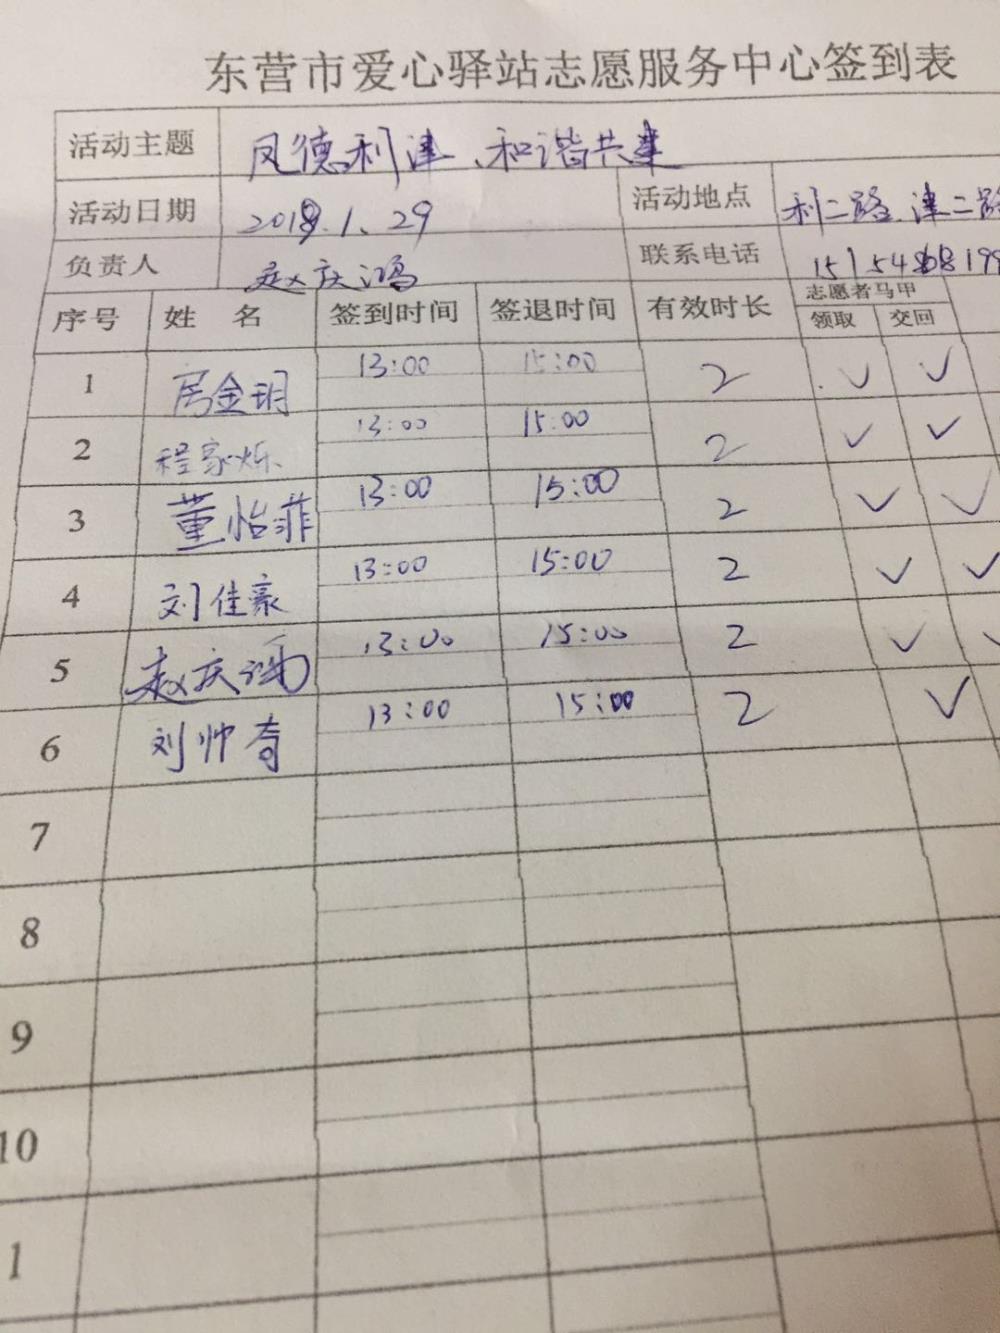 东营市爱心驿站志愿服务中心签到表
活动主题 凤德利津、和谐共建
活动日期 2018.1.29 活动地点 利二路.津二路
负责人 赵庆鸿 联系电话
序号 姓名 签到时间 签退时间 有效时长 志愿者马甲 领取 交回
1 房金玥 13:00 15:00 2 ✓ ✓
2 程家烁 13:00 15:00 2 ✓ ✓
3 董怡菲 13:00 15:00 2 ✓ ✓
4 刘佳豪 13:00 15:00 2 ✓ ✓
5 赵庆鸿 13:00 15:00 2 ✓ ✓
6 刘帅奇 13:00 15:00 2 ✓
7
8
9
10
1